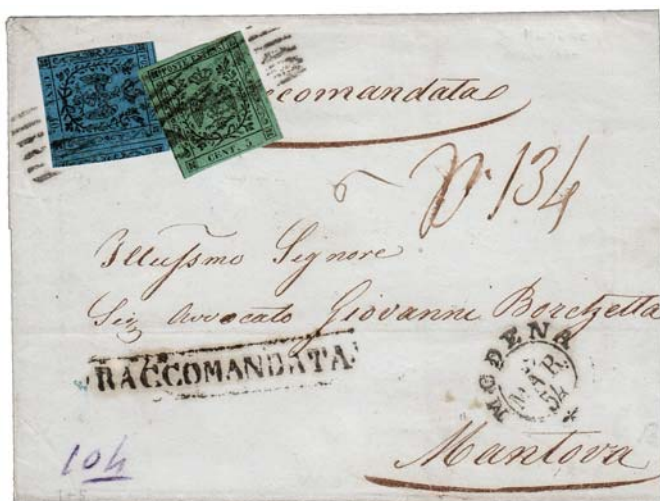 POSTE ESTENSI
CENT. 5
ccomandata
N. 134
Illussmo Signore
Sig Avvocato Giovanni Boretzetta
RACCOMANDATA
MODENA
MAR
54
104
Mantova